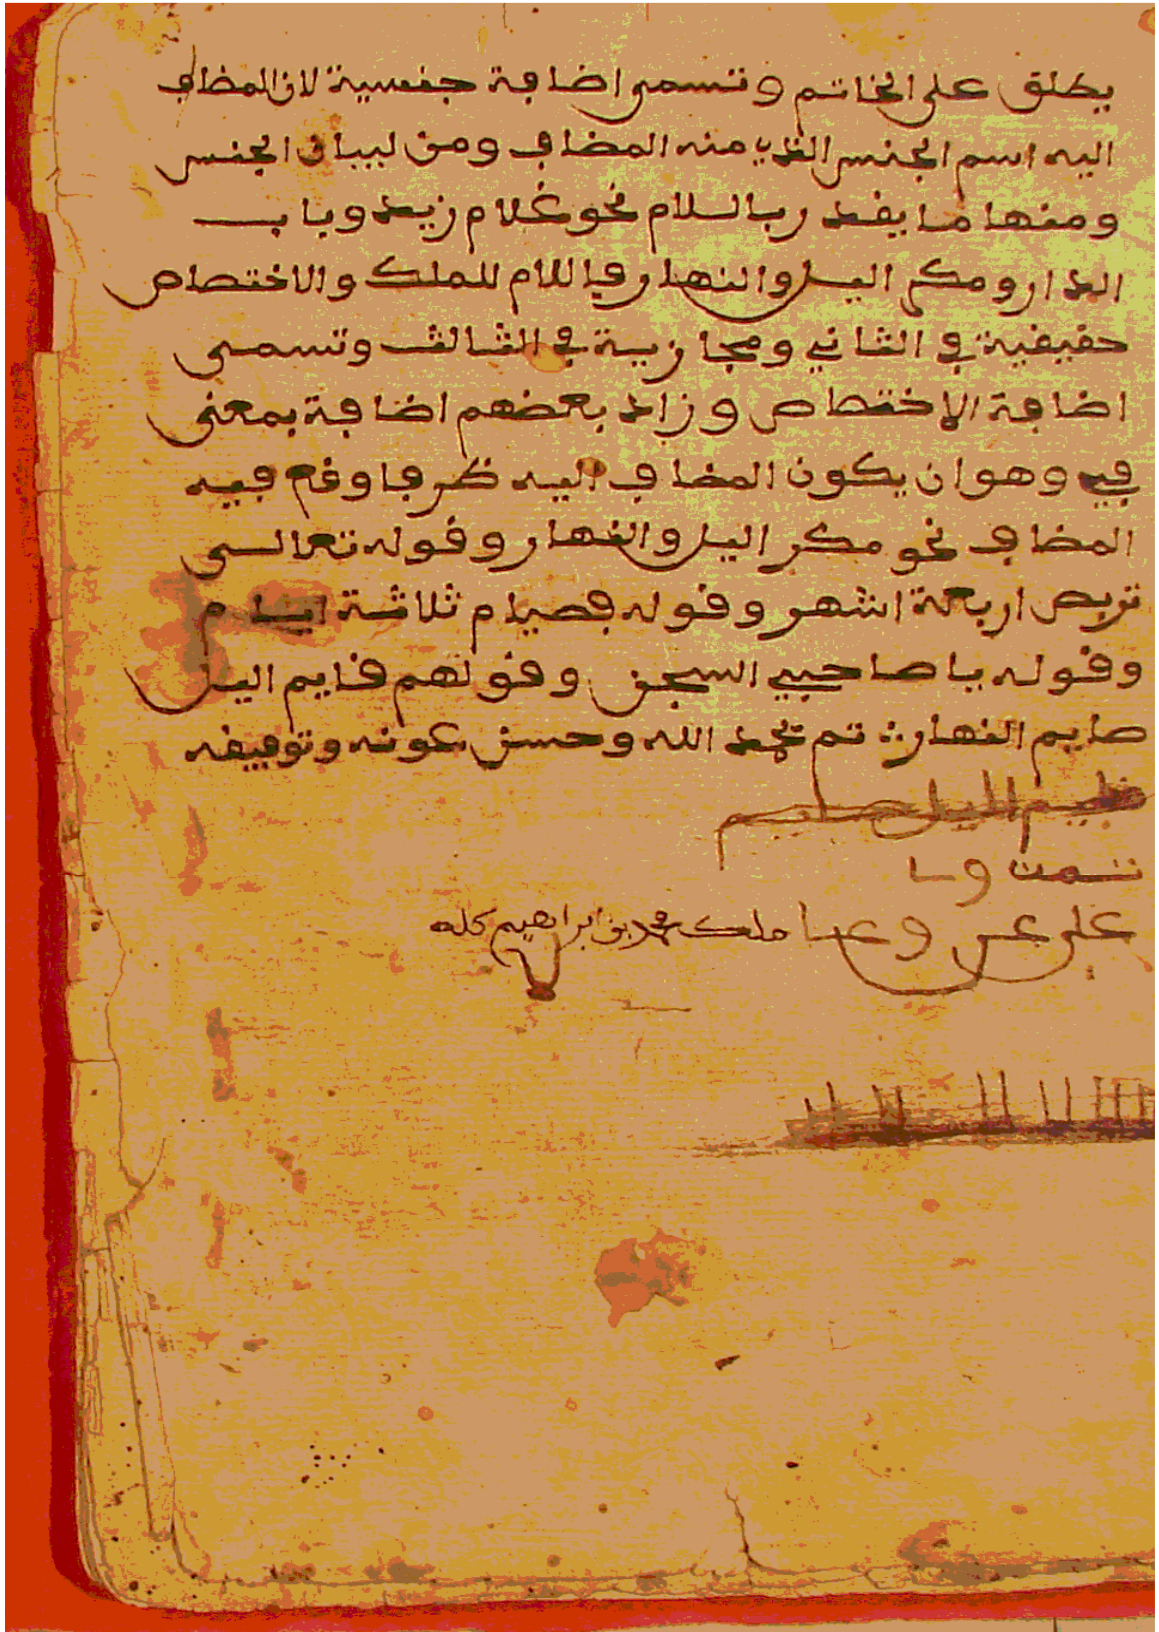 يطلق على الخاتم وتسمى اضافة جنسية لان المضاف
اليه اسم الجنس الذي منه المضاف ومن لبيان الجنس
ومنها ما يقدر باللام نحو غلام زيد وباب
الدار ومكر اليل والنهار فاللام للملك والاختصاص
حقيقية في الثاني ومجازية في الثالث وتسمى
اضافة الاختصاص وزاد بعضهم اضافة بمعنى
في وهو ان يكون المضاف اليه ظرفا وقع فيه
المضاف نحو مكر اليل والنهار وقوله تعالى
تربص اربعة اشهر وقوله فصيام ثلاثة ايام
وقوله يا صاحبي السجن وقولهم قايم اليل
صايم النهار تم بحمد الله وحسن عونه وتوفيقه
تمت
على
ملك محمد بن ابراهيم كله